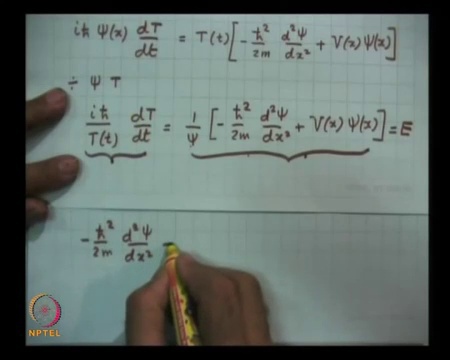 iħ Ψ(x) dT/dt = T(t) [-ħ²/2m d²Ψ/dx² + V(x) Ψ(x)]
÷ Ψ T
iħ/T(t) dT/dt = 1/Ψ [-ħ²/2m d²Ψ/dx² + V(x) Ψ(x)] = E
-ħ²/2m d²Ψ/dx²
NPTEL